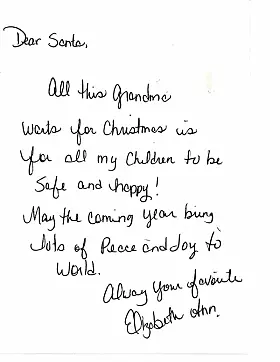 Dear Santa,
All this Grandma
wants for Christmas is
for all my Children to be
Safe and happy!
May the coming year bring
lots of Peace and Joy to
World.
Alway your favorite
Elizabeth Ann.